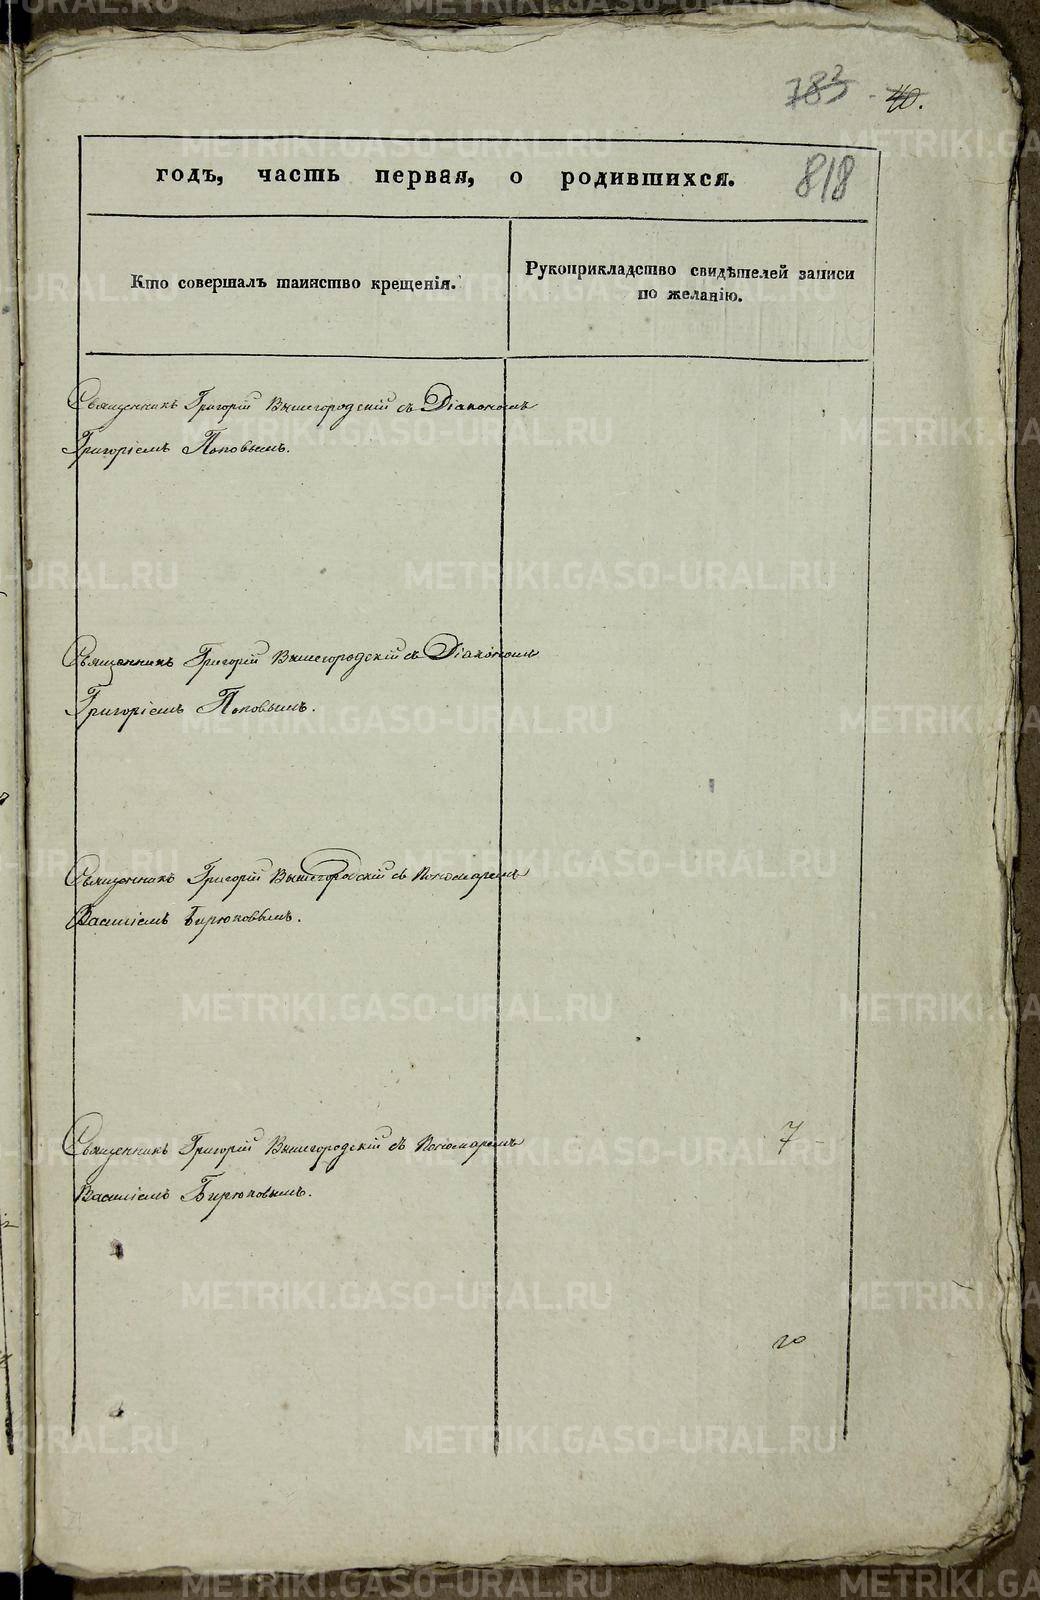 783 - 40.
годъ, часть первая, о родившихся.
818
Кто совершалъ таинство крещенія.
Рукоприкладство свидѣтелей записи
по желанію.
Священникъ Григорій Вышегородскій съ Діакономъ
Григоріемъ Поповымъ.
Священникъ Григорій Вышегородскій съ Діакономъ
Григоріемъ Поповымъ.
Священникъ Григорій Вышегородскій съ Пономаремъ
Василіемъ Бирюковымъ.
Священникъ Григорій Вышегородскій съ Пономаремъ
Василіемъ Бирюковымъ.
7
METRIKI.GASO-URAL.RU